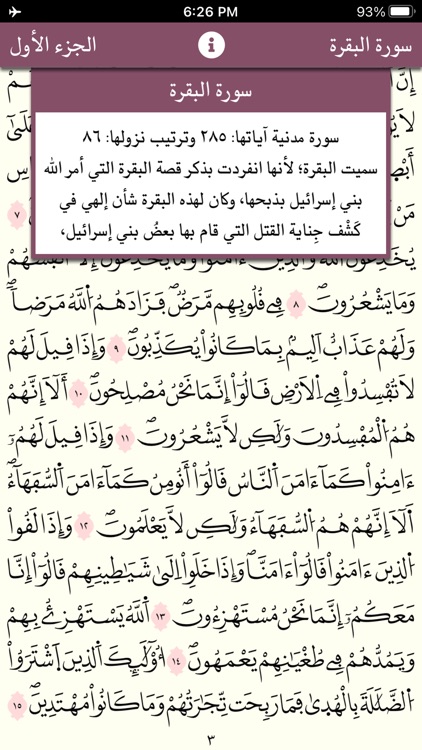 6:26 PM 93%
سورة البقرة
الجزء الأول
سورة البقرة
سورة مدنية آياتها: ٢٨٥ وترتيب نزولها: ٨٦
سميت البقرة؛ لأنها انفردت بذكر قصة البقرة التي أمر الله
بني إسرائيل بذبحها، وكان لهذه البقرة شأن إلهي في
كَشْف جِناية القتل التي قام بها بعضُ بني إسرائيل،
مَنْ ٧
وَمَا يَشْعُرُونَ ٨ فِے قُلُوبِهِم مَّرَضٌ فَزَادَهُمُ اُللَّهُ مَرَضاً
وَلَهُمْ عَذَابٌ اَلِيمٌ بِمَا كَانُواْ يُكَذِّبُونَ ٩ وَإِذَا قِيلَ لَهُمْ
لَا تُفْسِدُواْ فِے اِلَارْضِ قَالُوٓاْ إِنَّمَا نَحْنُ مُصْلِحُونَ ١٠ أَلَآ إِنَّهُمْ
هُمُ اُلْمُفْسِدُونَ وَلَٰكِن لَّا يَشْعُرُونَ ١١ وَإِذَا قِيلَ لَهُمُۥٓ
ءَامِنُواْ كَمَآ ءَامَنَ اَلنَّاسُ قَالُوٓاْ أَنُومِنُ كَمَآ ءَامَنَ اَلسُّفَهَآءُ
أَلَآ إِنَّهُمْ هُمُ اُلسُّفَهَآءُ وَلَٰكِن لَّا يَعْلَمُونَ ١٢ وَإِذَا لَقُواْ
اُلذِينَ ءَامَنُواْ قَالُوٓاْ ءَامَنَّا وَإِذَا خَلَوِاْ اِلَىٰ شَيَٰطِينِهِمْ قَالُوٓاْ إِنَّا
مَعَكُمُۥٓ إِنَّمَا نَحْنُ مُسْتَهْزِءُونَ ١٣ اَللَّهُ يَسْتَهْزِئُ بِهِمْ
وَيَمُدُّهُمْ فِے طُغْيَٰنِهِمْ يَعْمَهُونَ ١٤ أُوْلَٰٓئِكَ اَلذِينَ اَشْتَرَوُاْ
اُلضَّلَٰلَةَ بِالْهُدَىٰ فَمَا رَبِحَت تِّجَٰرَتُهُمْ وَمَا كَانُواْ مُهْتَدِينَ ١٥
٣